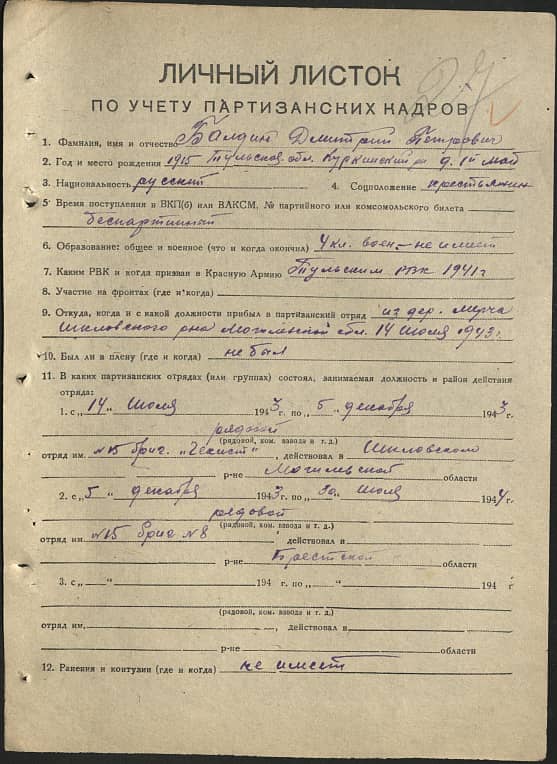 ЛИЧНЫЙ ЛИСТОК
ПО УЧЕТУ ПАРТИЗАНСКИХ КАДРОВ
1. Фамилия, имя и отчество Балдин Дмитрий Петрович
2. Год и место рождения 1915 Тульская обл. Куркинский р-н д. 1й май
3. Национальность русский 4. Соцположение крестьянин
5 Время поступления в ВКП(б) или ВЛКСМ, № партийного или комсомольского билета
беспартийный
6. Образование: общее и военное (что и когда окончил) 4 кл. воен.- не имеет
7. Каким РВК и когда призван в Красную Армию Тульским РВК 1941г
8. Участие на фронтах (где и когда)
9. Откуда, когда и с какой должности прибыл в партизанский отряд из дер.
Шкловского рна Могилевской обл. 14 июля 1943г.
10. Был ли в плену (где и когда) не был
11. В каких партизанских отрядах (или группах) состоял, занимаемая должность и район действия
отряда:
1. с „14" июля 1943 г. по „5" декабря 1943 г.
рядовой
(рядовой, ком. взвода и т. д.)
отряд им. №15 бриг. "Чекист", действовал в Шкловском
р-не Могильской области
2. с „5" декабря 1943 г. по „30" июля 1944 г.
рядовой
(рядовой, ком. взвода и т. д.)
отряд им. №15 бриг №8 действовал в
р-не Брестской области
3. с „ " 194 г. по „ " 194 г
(рядовой, ком. взвода и т. д.)
отряд им. , действовал в
р-не области
12. Ранения и контузии (где и когда) не имеет